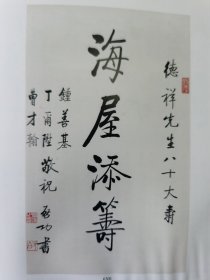 德祥先生八十大壽
海屋添籌
鍾善基
丁爾陞 敬祝 啓功書
曹才翰